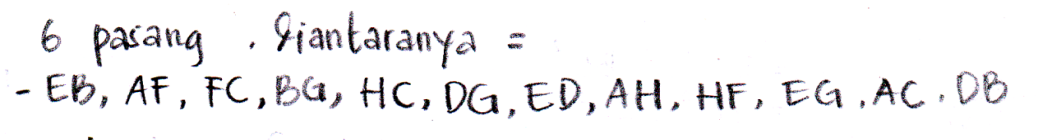 6 pasang . Diantaranya =
- EB, AF, FC, BG, HC, DG, ED, AH, HF, EG, AC, DB